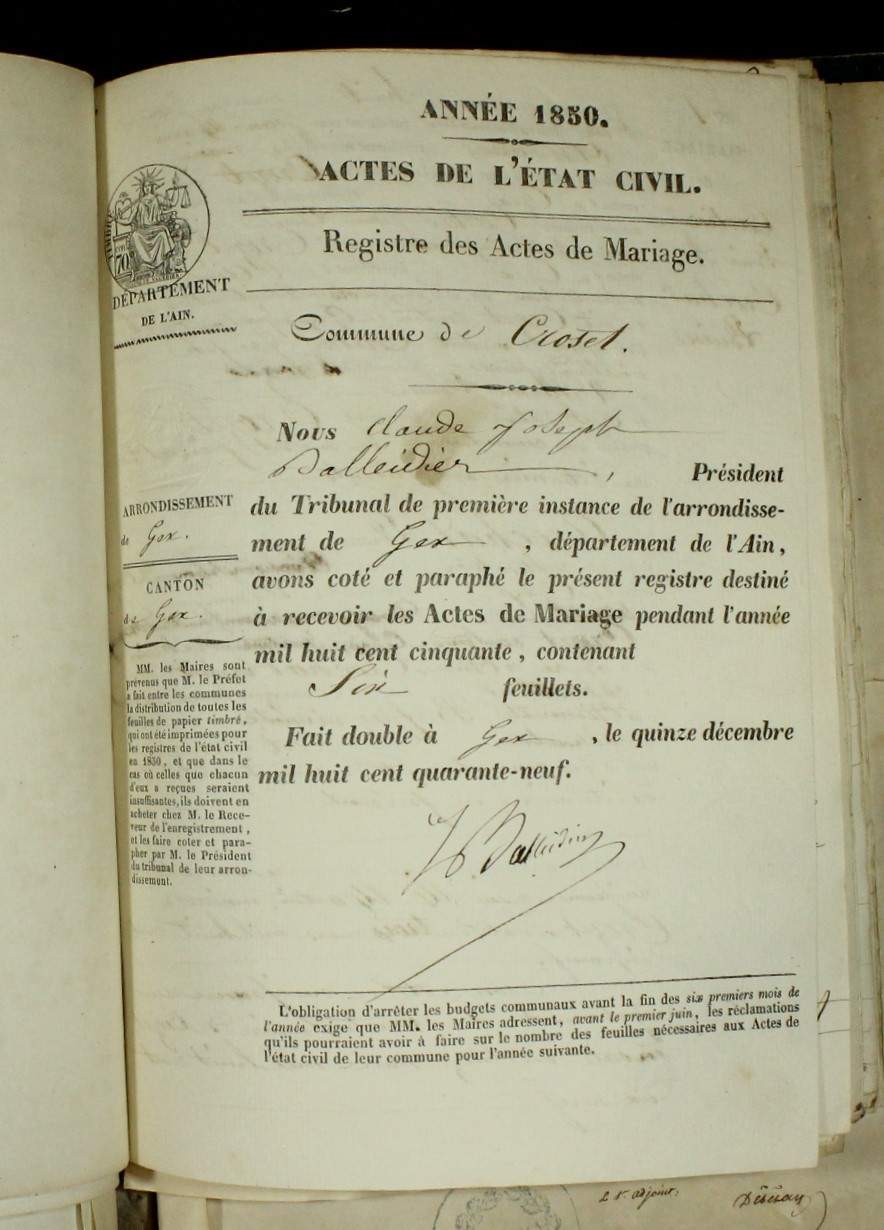 ANNÉE 1850.
ACTES DE L'ÉTAT CIVIL.
Registre des Actes de Mariage.
DÉPARTEMENT
DE L'AIN.
Commune de Croset.
Nous Claude Joseph
Balleidier, Président
du Tribunal de première instance de l'arrondisse-
ment de Gex, département de l'Ain,
avons coté et paraphé le présent registre destiné
à recevoir les Actes de Mariage pendant l'année
mil huit cent cinquante, contenant
Six feuillets.
Fait double à Gex, le quinze décembre
mil huit cent quarante-neuf.
Balleidier
ARRONDISSEMENT
de Gex.
CANTON
de Gex.
MM. les Maires sont
prévenus que M. le Préfet
a fait entre les communes
la distribution de toutes les
feuilles de papier timbré,
qui ont été imprimées pour
les registres de l'état civil
en 1850, et que dans le
cas où celles que chacun
d'eux a reçues seraient
insuffisantes, ils doivent en
acheter chez M. le Rece-
veur de l'enregistrement,
et les faire coter et para-
pher par M. le Président
du tribunal de leur arron-
dissement.
L'obligation d'arrêter les budgets communaux avant la fin des six premiers mois de
l'année exige que MM. les Maires adressent, avant le premier juin, les réclamations
qu'ils pourraient avoir à faire sur le nombre des feuilles nécessaires aux Actes de
l'état civil de leur commune pour l'année suivante.
adjoint